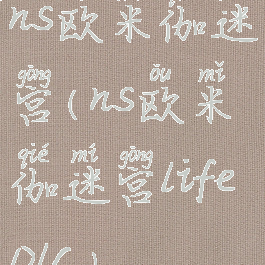 ns欧米伽迷
gōng ōu mǐ
宫(ns欧米
qié mí gōng
伽迷宫life